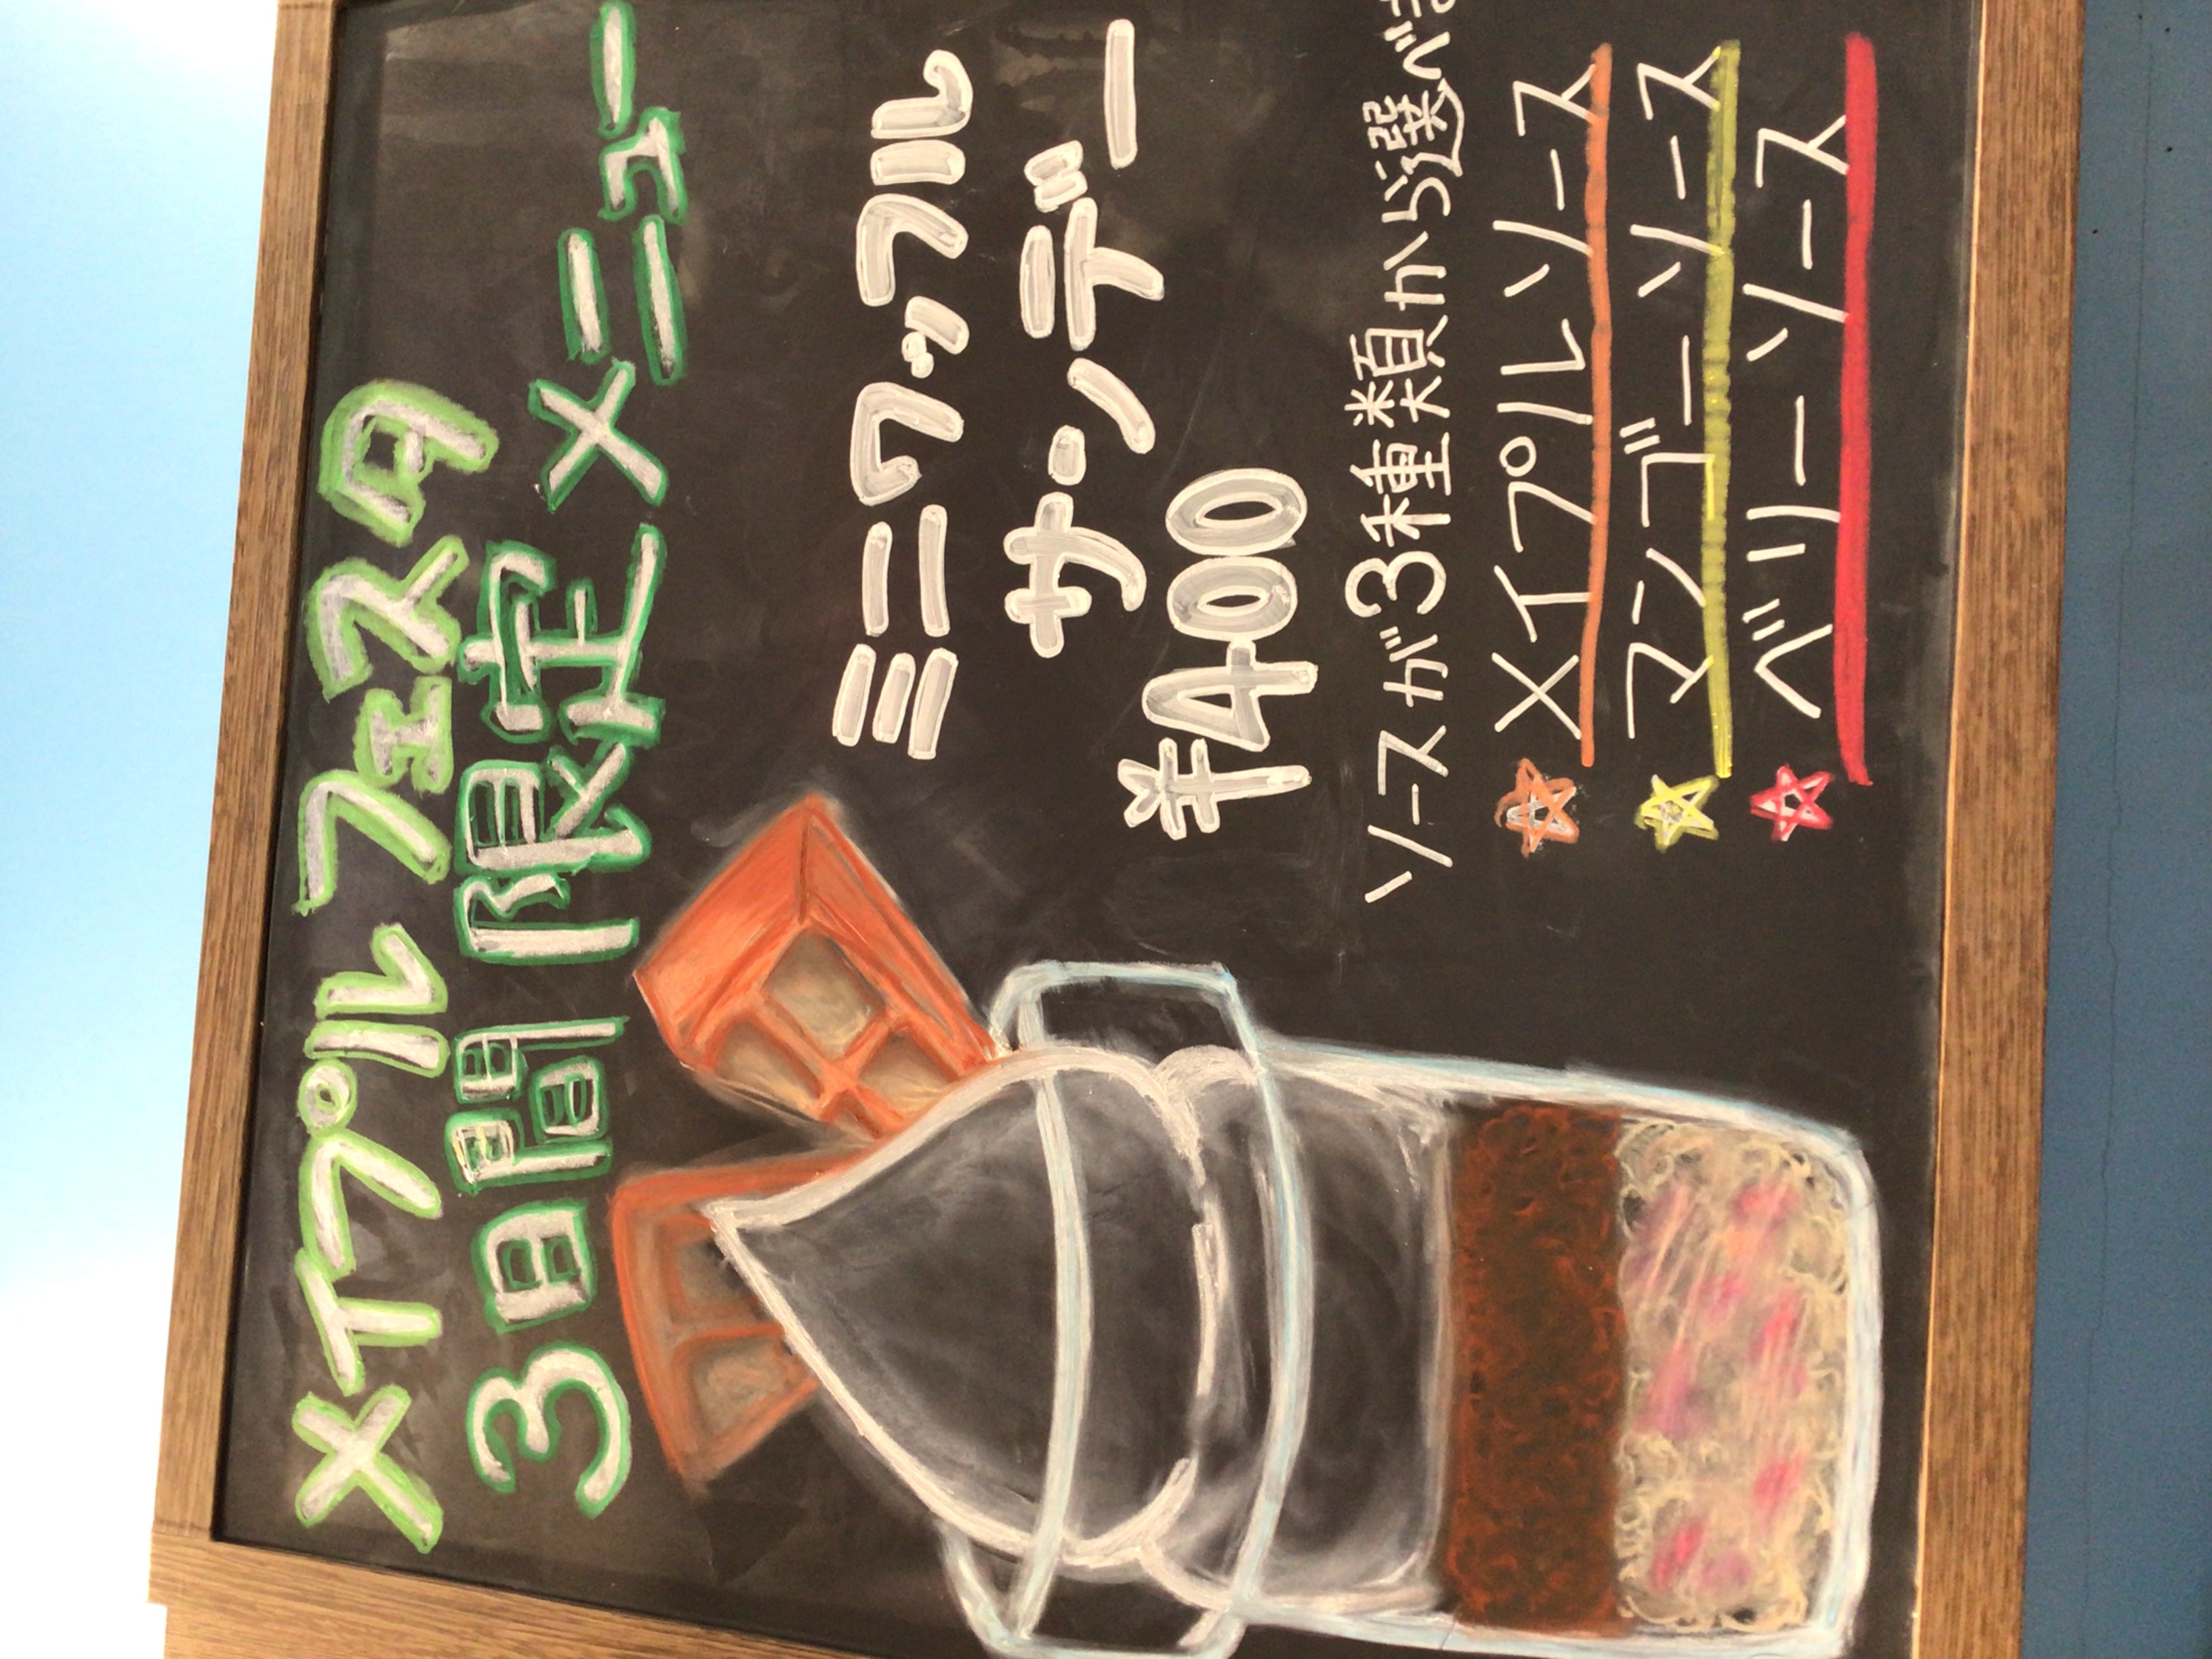 メイプルフェスタ
3日間限定メニュー
ミニワッフル
サンデー
¥400
ソースが3種類から選べま
☆メイプルソース
☆マンゴーソース
☆ベリーソース